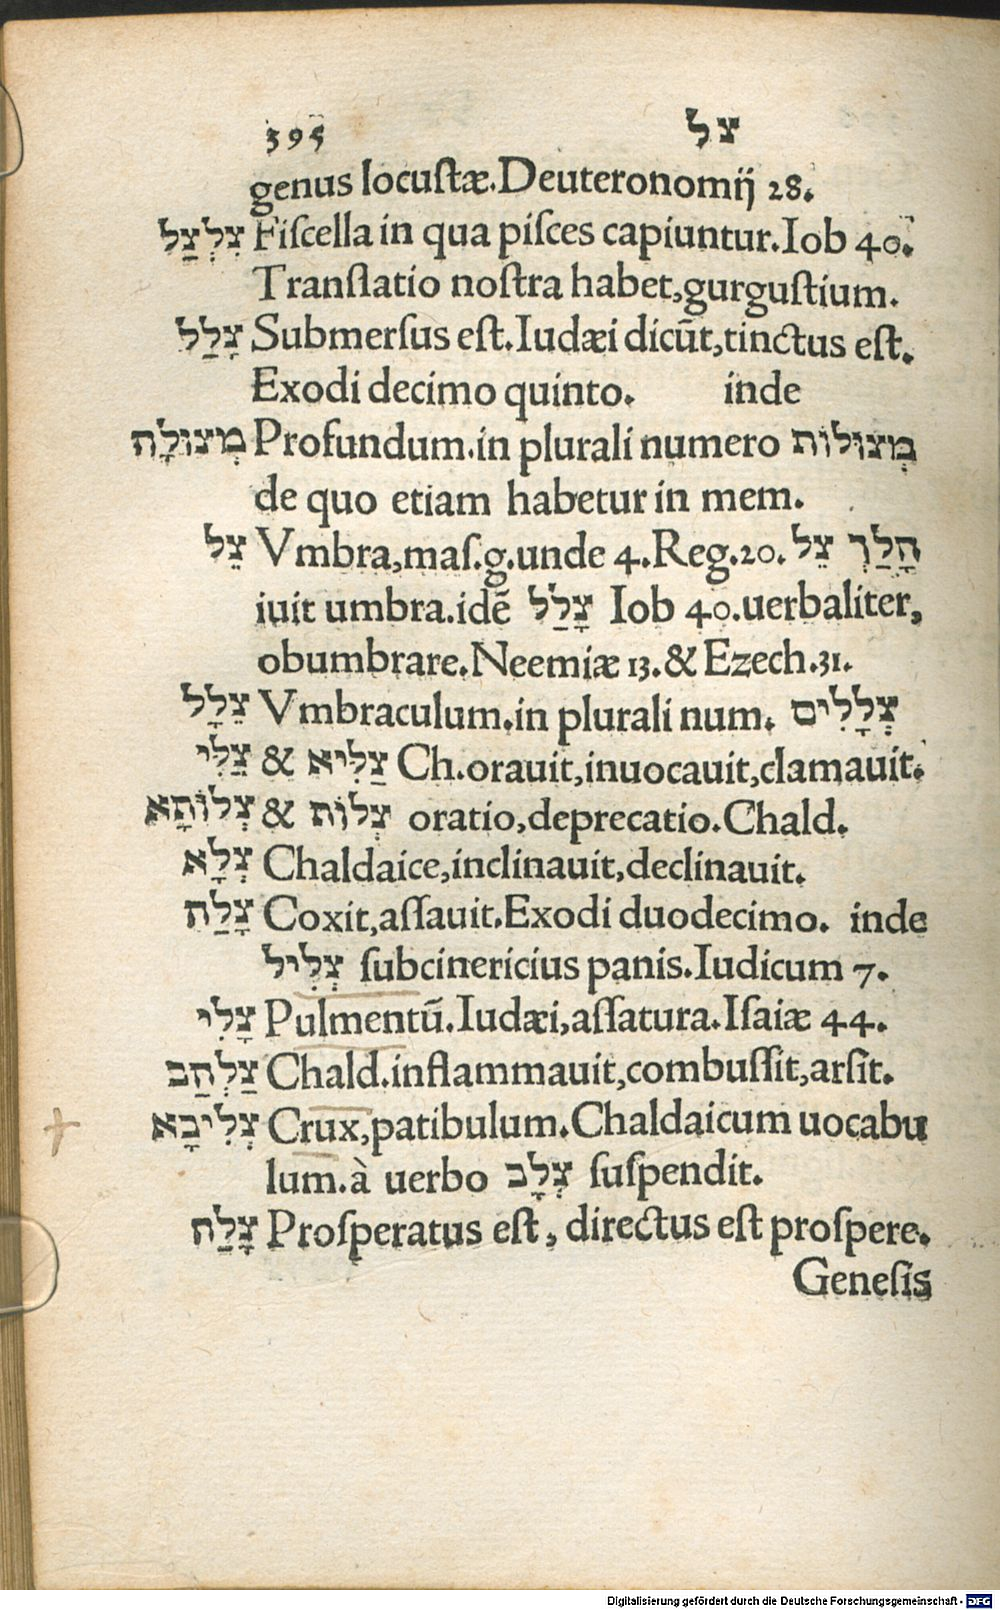 395 צל
genus locustæ. Deuteronomij 28.
צִלְצַל Fiſcella in qua piſces capiuntur. Iob 40.
Tranſlatio noſtra habet, gurguſtium.
צָלַל Submerſus eſt. Iudæi dicūt, tinctus eſt.
Exodi decimo quinto. inde
מְצוּלָה Profundum. in plurali numero מְצוּלוֹת
de quo etiam habetur in mem.
צֵל Vmbra, maſ. g. unde 4. Reg. 20. הָלַךְ צֵל
iuit umbra. idē צָלַל Iob 40. uerbaliter,
obumbrare. Neemiæ 13. & Ezech. 31.
צֵלָל Vmbraculum. in plurali num. צְלָלִים
צַלִּי & צַלִּיא Ch. orauit, inuocauit, clamauit.
צְלוֹתָא & צְלוֹת oratio, deprecatio. Chald.
צְלָא Chaldaice, inclinauit, declinauit.
צָלַח Coxit, aſſauit. Exodi duodecimo. inde
צְלִיל ſubcinericius panis. Iudicum 7.
צָלִי Pulmentū. Iudæi, aſſatura. Iſaiæ 44.
צַלְהַב Chald. inflammauit, combuſſit, arſit.
צְלִיבָא Crux, patibulum. Chaldaicum uocabu
lum. à uerbo צְלָב ſuſpendit.
צָלַח Proſperatus eſt, directus eſt proſpere.
Geneſis
Digitalisierung gefördert durch die Deutsche Forschungsgemeinschaft - DFG